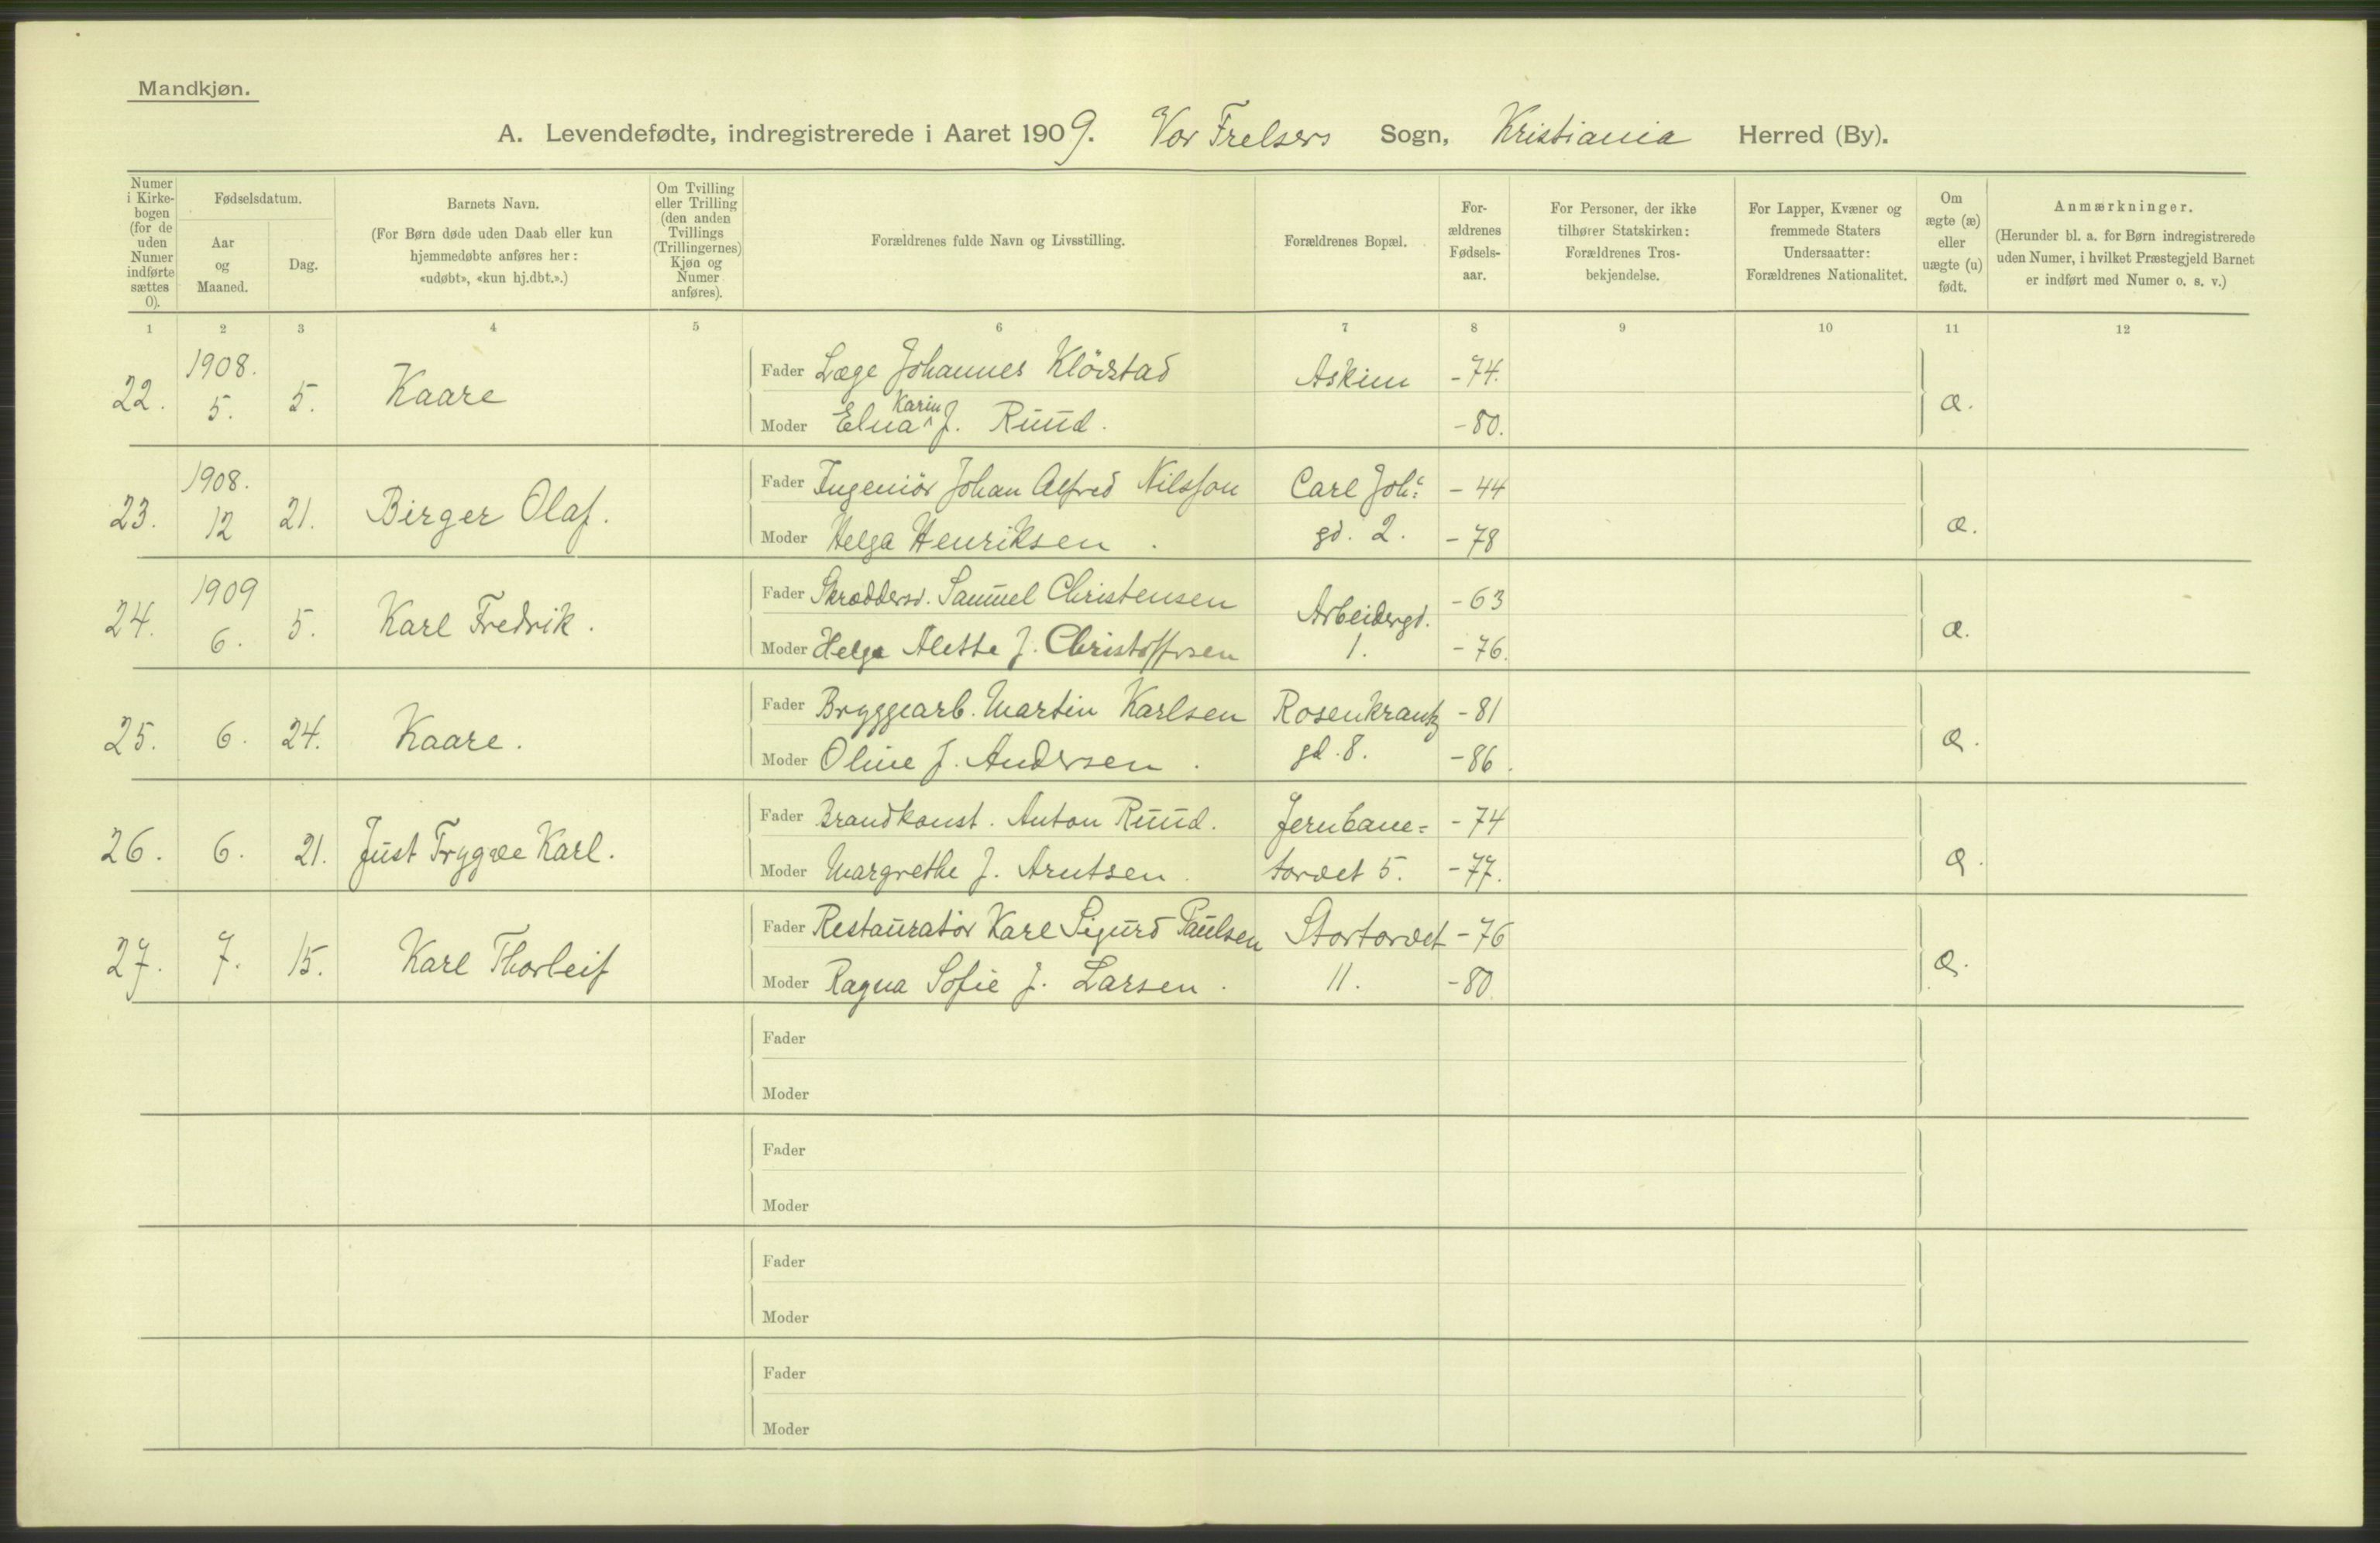 Mandkjøn.
A. Levendefødte, indregistrerede i Aaret 1909. Vor Frelsers Sogn, Kristiania Herred (By).
Numer i Kirke- bogen (for de uden Numer indførte sættes 0).
Fødselsdatum.
Aar og Maaned.
Dag.
Barnets Navn.
(For Børn døde uden Daab eller kun
hjemmedøbte anføres her:
«udøbt», «kun hj.dbt.».)
Om Tvilling eller Trilling (den anden Tvillings (Trillingernes) Kjøn og Numer anføres).
Forældrenes fulde Navn og Livsstilling.
Forældrenes Bopæl.
For- ældrenes Fødsels- aar.
For Personer, der ikke
tilhører Statskirken:
Forældrenes Tros-
bekjendelse.
For Lapper, Kvæner og
fremmede Staters
Undersaatter:
Forældrenes Nationalitet.
Om ægte (æ) eller uægte (u) født.
Anmærkninger.
(Herunder bl. a. for Børn indregistrerede
uden Numer, i hvilket Præstegjeld Barnet
er indført med Numer o. s. v.)
1 2 3 4 5 6 7 8 9 10 11 12
22. 1908. 5. 5. Kaare Fader Læge Johannes Klövstad Askim - 74. æ.
Moder Elna Karin J. Ruud. - 80.
23. 1908. 12 21. Birger Olaf. Fader Ingeniör Johan Alfred Nilsson Carl Joh: - 44 æ.
Moder Helga Henriksen. gd. 2. - 78
24. 1909 6. 5. Karl Fredrik. Fader Skræddersv. Samuel Christensen Arbeidergd. - 63 æ.
Moder Helga Alette J. Christoffersen 1. - 76.
25. 6. 24. Kaare. Fader Bryggearb. Martin Karlsen Rosenkrantz - 81 æ.
Moder Oline J. Andersen. gd. 8. - 86.
26. 6. 21. Just Trygve Karl. Fader Brandkonst. Anton Ruud. Jernbane= - 74 æ.
Moder Margrethe J. Arntsen. torvet 5. - 77.
27. 7. 15. Karl Thorleif Fader Restauratör Karl Sigurd Paulsen Stortorvet - 76 æ.
Moder Ragna Sofie J. Larsen. 11. - 80.
Fader
Moder
Fader
Moder
Fader
Moder
Fader
Moder